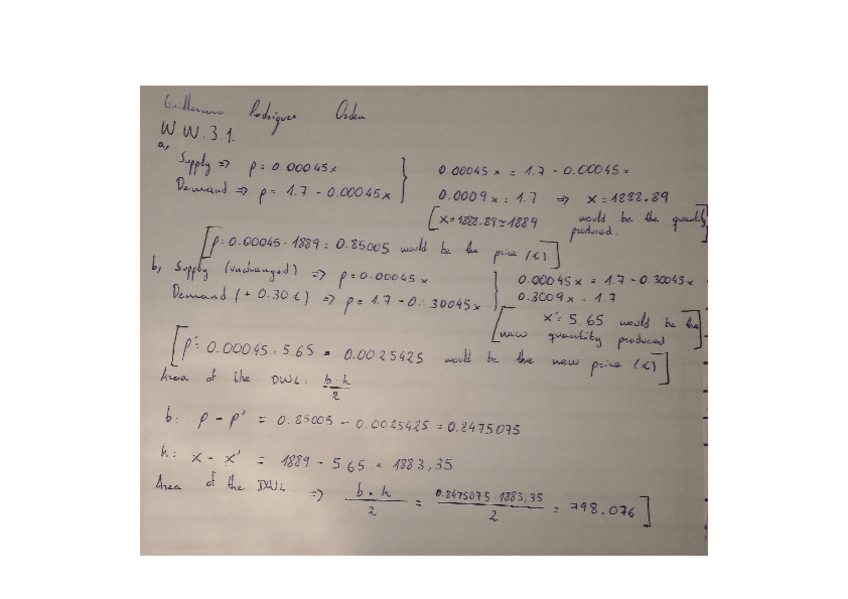 Guillermo Rodriguez Orden
W.W.3.1.
a,
Supply => p = 0.00045x } 0.00045x = 1.7 - 0.00045x
Demand => p = 1.7 - 0.00045x 0.0009x = 1.7 => x = 1888.89
[x = 1888.89 ≈ 1889 would be the quantity produced.]
[p = 0.00045 · 1889 = 0.85005 would be the price (€)]
b, Supply (unchanged) => p = 0.00045x } 0.00045x = 1.7 - 0.30045x
Demand (+ 0.30€) => p = 1.7 - 0.30045x 0.3009x = 1.7
[x' = 5.65 would be the
new quantity produced]
[p' = 0.00045 · 5.65 = 0.0025425 would be the new price (€)]
Area of the DWL: b·h / 2
b: p - p' = 0.85005 - 0.0025425 = 0.8475075
h: x - x' = 1889 - 5.65 = 1883,35
Area of the DWL => b·h / 2 = 0.8475075·1883,35 / 2 = 798.076]